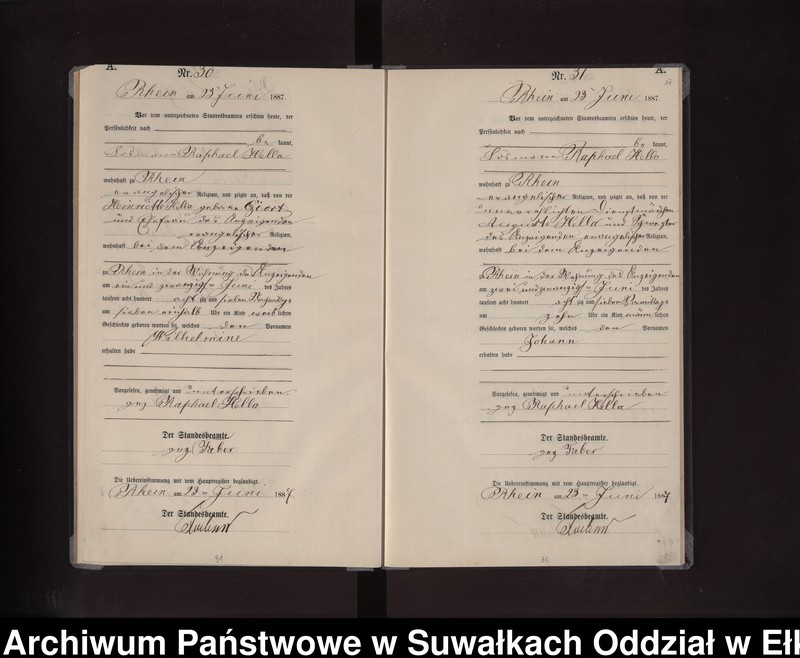 A.
Nr. 30
Rhein am 23 Juni 1887.
Vor dem unterzeichneten Standesbeamten erschien heute, der
Persönlichkeit nach
be kannt,
Losmann Raphael Kella
wohnhaft zu Rhein
evangelischer Religion, und zeigte an, daß von der
Henriette Kella geborene
und Ehefrau des Anzeigenden
evangelischer Religion,
wohnhaft bei dem Anzeigenden
zu Rhein in der Wohnung des Anzeigenden
am ein und zwanzigsten Juni des Jahres
tausend acht hundert acht zig und sieben Nachmittags
um sieben einhalb Uhr ein Kind weiblichen
Geschlechts geboren worden sei, welches den Vornamen
Wilhelmine
erhalten habe
Vorgelesen, genehmigt und unterschrieben
gez Raphael Kella
Der Standesbeamte.
gez Faber
Die Uebereinstimmung mit dem Hauptregister beglaubigt.
Rhein am 23 ten Juni 1887.
Der Standesbeamte.
31
A.
Nr. 31
Rhein am 23 Juni 1887.
Vor dem unterzeichneten Standesbeamten erschien heute, der
Persönlichkeit nach
be kannt,
Losmann Raphael Kella
wohnhaft zu Rhein
evangelischer Religion, und zeigte an, daß von der
unverehelichten Dienstmädchen
Auguste Kella und Schwester
des Anzeigenden evangelischer Religion,
wohnhaft bei dem Anzeigenden
zu Rhein in der Wohnung des Anzeigenden
am zwei und zwanzigsten Juni des Jahres
tausend acht hundert acht zig und sieben Vormittags
um zehn Uhr ein Kind männlichen
Geschlechts geboren worden sei, welches den Vornamen
Johann
erhalten habe
Vorgelesen, genehmigt und unterschrieben
gez Raphael Kella
Der Standesbeamte.
gez Faber
Die Uebereinstimmung mit dem Hauptregister beglaubigt.
Rhein am 23 ten Juni 1887
Der Standesbeamte.
32
Archiwum Państwowe w Suwałkach Oddział w Ełk